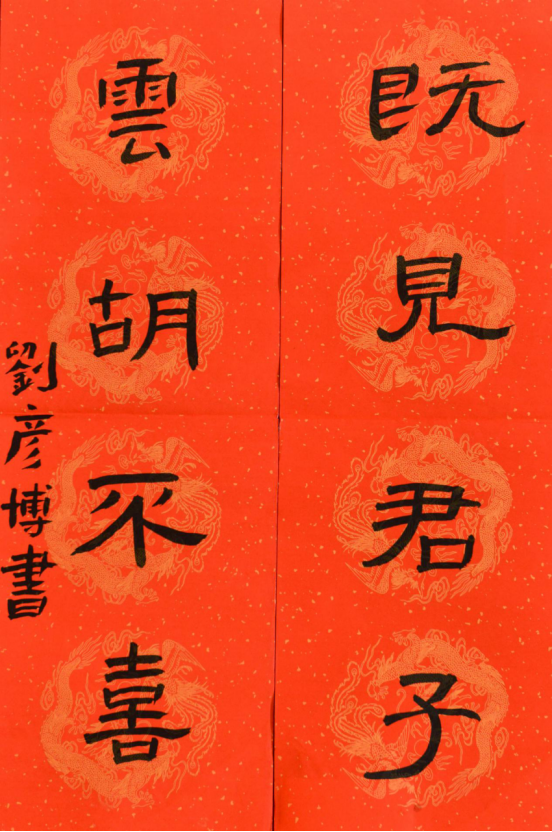 既見君子
雲胡不喜
劉彥博書